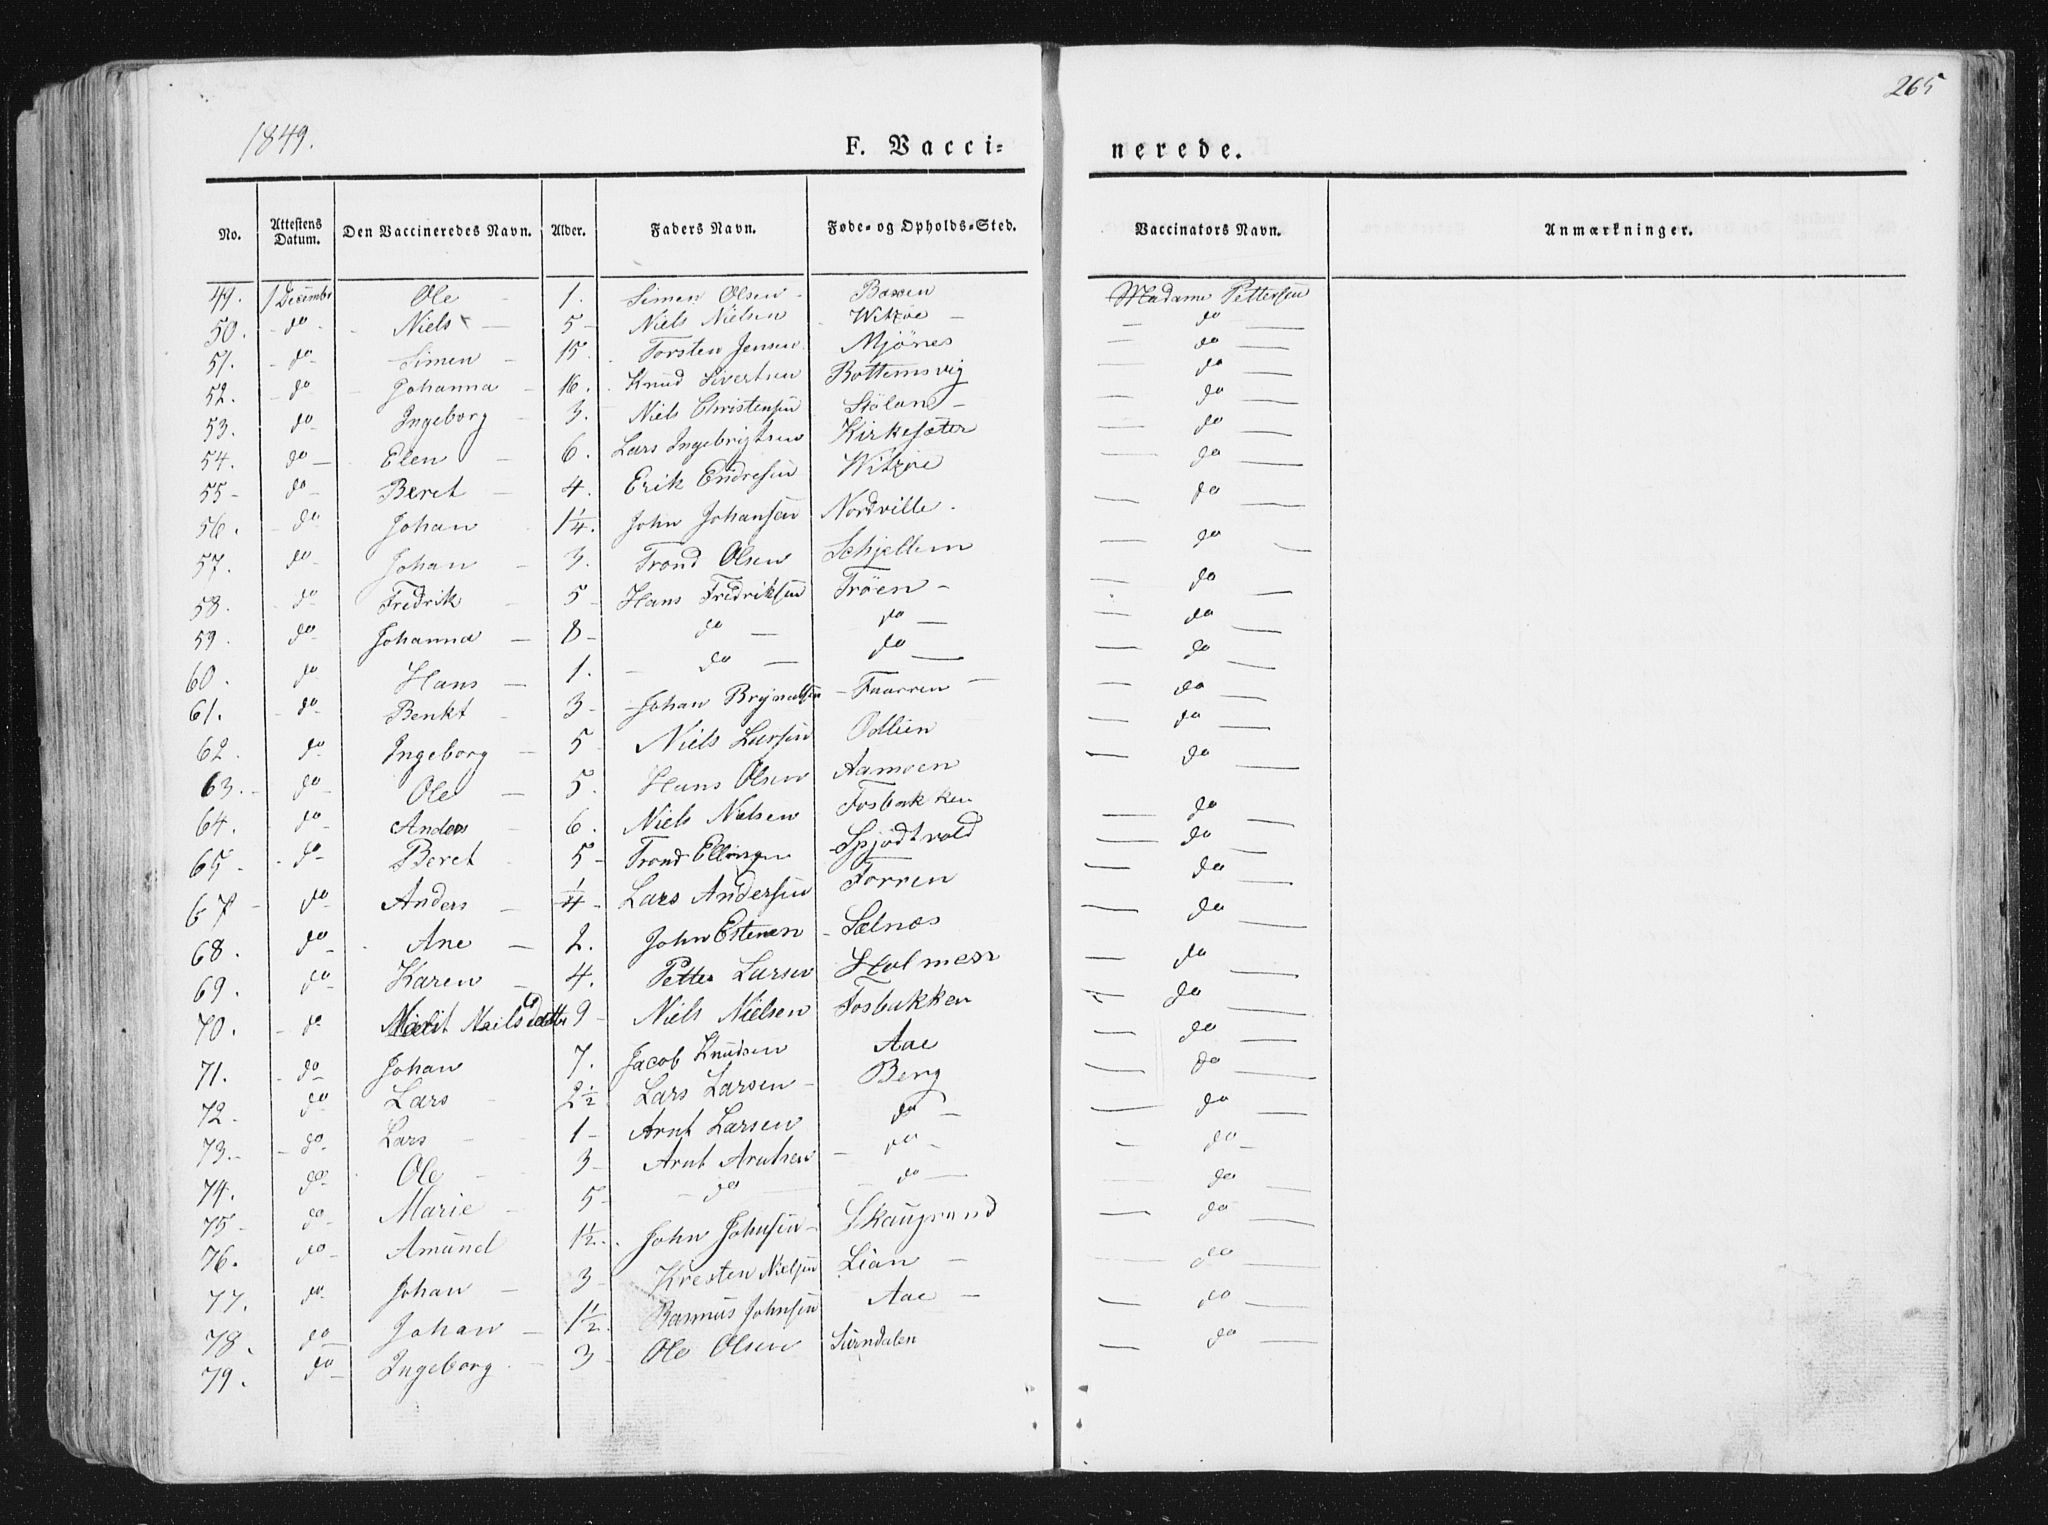 265
1849.
F. Vacci=nerede.
No. | Attestens Datum. | Den Vaccineredes Navn. | Alder. | Faders Navn. | Føde- og Opholds-Sted. | Vaccinators Navn. | Anmærkninger.
49. | 1 Decembr | Ole | 1. | Simen Olsen | | Madame Pettersen
50. | do | Niels | 5 | Niels Nielsen | Witzøe | do
51. | do | Simen | 15. | Torsten Jensen | Mjönes | do
52. | do | Johanna | 16. | Knud Sivertsen | Bottensvig | do
53. | do | Ingeborg | 3. | Niels Christensen | Stölan | do
54. | do | Elen | 6. | Lars Ingebrigtsen | Kirkesæter | do
55 | do | Beret | 4. | Erik Endresen | Witzøe | do
56. | do | Johan | 1 1/4. | John Johansen | Nordville. | do
57. | do | Johan | 3. | Trond Olsen | Schjellem | do
58. | do | Fredrik | 5 | Hans Fredriksen | Tröen | do
59. | do | Johanna | 8 | do | do | do
60. | do | Hans | 1. | do | do | do
61. | do | Benkt | 3 | Johan Brynelsen | | do
62. | do | Ingeborg | 5 | Niels Larsen | Odlien | do
63. | do | Ole | 5. | Hans Olsen | Aamoen | do
64. | do | Anders | 6. | Niels Nielsen | Fosbakken | do
65. | do | Beret | 5 | Trond Ellingsen | Spjödtvold | do
67 | do | Anders | 1/4 | Lars Andersen | Torren | do
68. | do | Ane | 2. | John Estensen | Sælnæs | do
69. | do | Karen | 4. | Petter Larsen | Holmen | do
70. | do | Marit | 9 | Niels Nielsen | Fosbakken | do
71. | do | Johan | 7. | Jacob Knudsen | Aae | do
72. | do | Lars | 2 1/2 | Lars Larsen | Berg | do
73. | do | Lars | 1 | Arnt Larsen | do | do
74. | do | Ole | 3 | Arnt Arntsen | do | do
75 | do | Marie | 5 | do | do | do
76. | do | Amund | 1 1/2. | John Johnsen | Skaugrand | do
77. | do | Johan | 3 | Kresten Nielsen | Lian | do
78. | do | Johan | 1 1/2. | Rasmus Johnsen | Aae | do
79. | do | Ingeborg | 3 | Ole Olsen | Surndalen | do